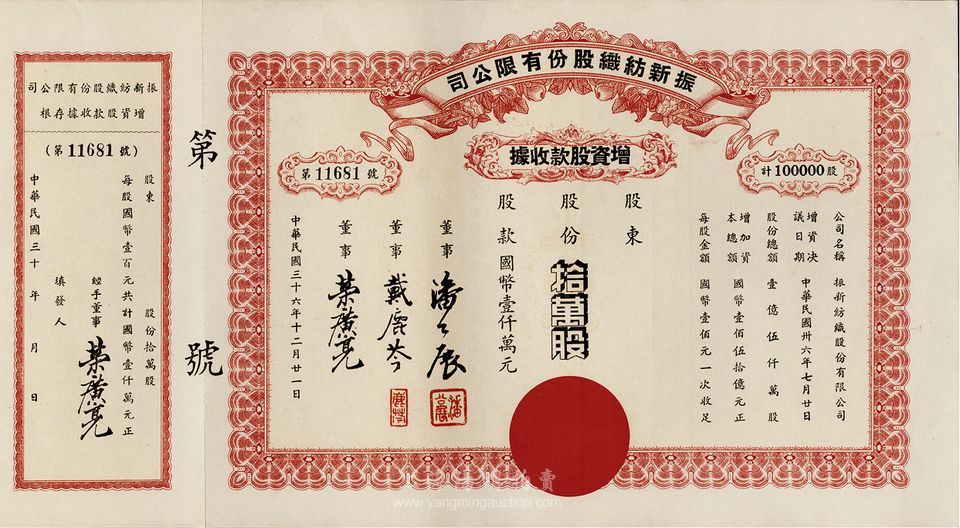 振新紡織股份有限公司
增資股款收據
計 100000 股
第 11681 號
公司名稱 振新紡織股份有限公司
增資決議日期 中華民國卅六年七月廿日
股份總額 壹億伍仟萬股
增加資本總額 國幣壹佰伍拾億元正
每股金額 國幣壹佰元一次收足
股東
股份 拾萬股
股款 國幣壹仟萬元
董事 潘公展
董事 戴鹿芩
董事 榮廣亮
中華民國三十六年十二月廿一日
第 號
振新紡織股份有限公司
增資股款收據存根
(第 11681 號)
股東 股份拾萬股
每股國幣壹百元共計國幣壹仟萬元正
經手董事 榮廣亮
填發人
中華民國三十 年 月 日
www.yangmingauction.com